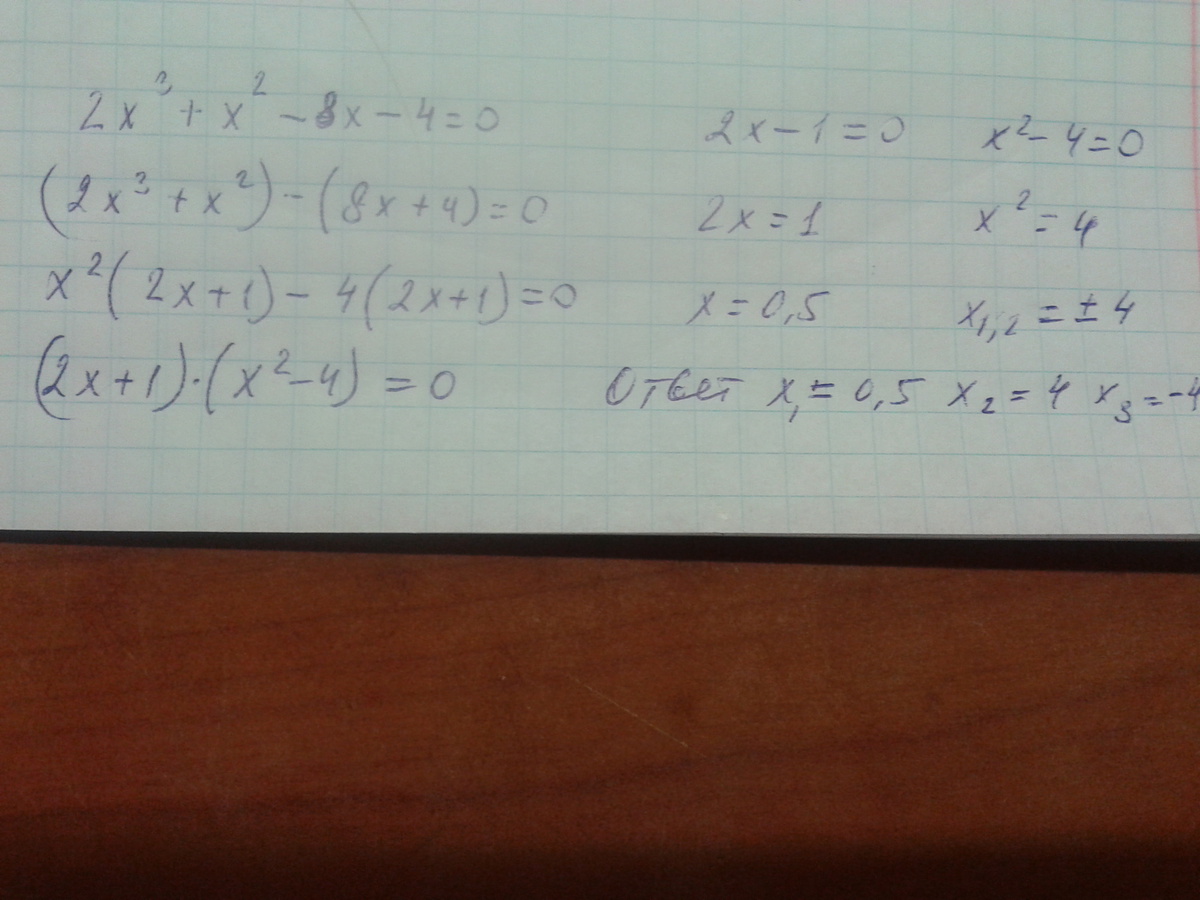 2x³ + x² - 8x - 4 = 0
(2x³ + x²) - (8x + 4) = 0
x²(2x + 1) - 4(2x + 1) = 0
(2x + 1)·(x² - 4) = 0
2x - 1 = 0
2x = 1
x = 0,5
x² - 4 = 0
x² = 4
x₁,₂ = ± 4
Ответ x₁ = 0,5 x₂ = 4 x₃ = -4